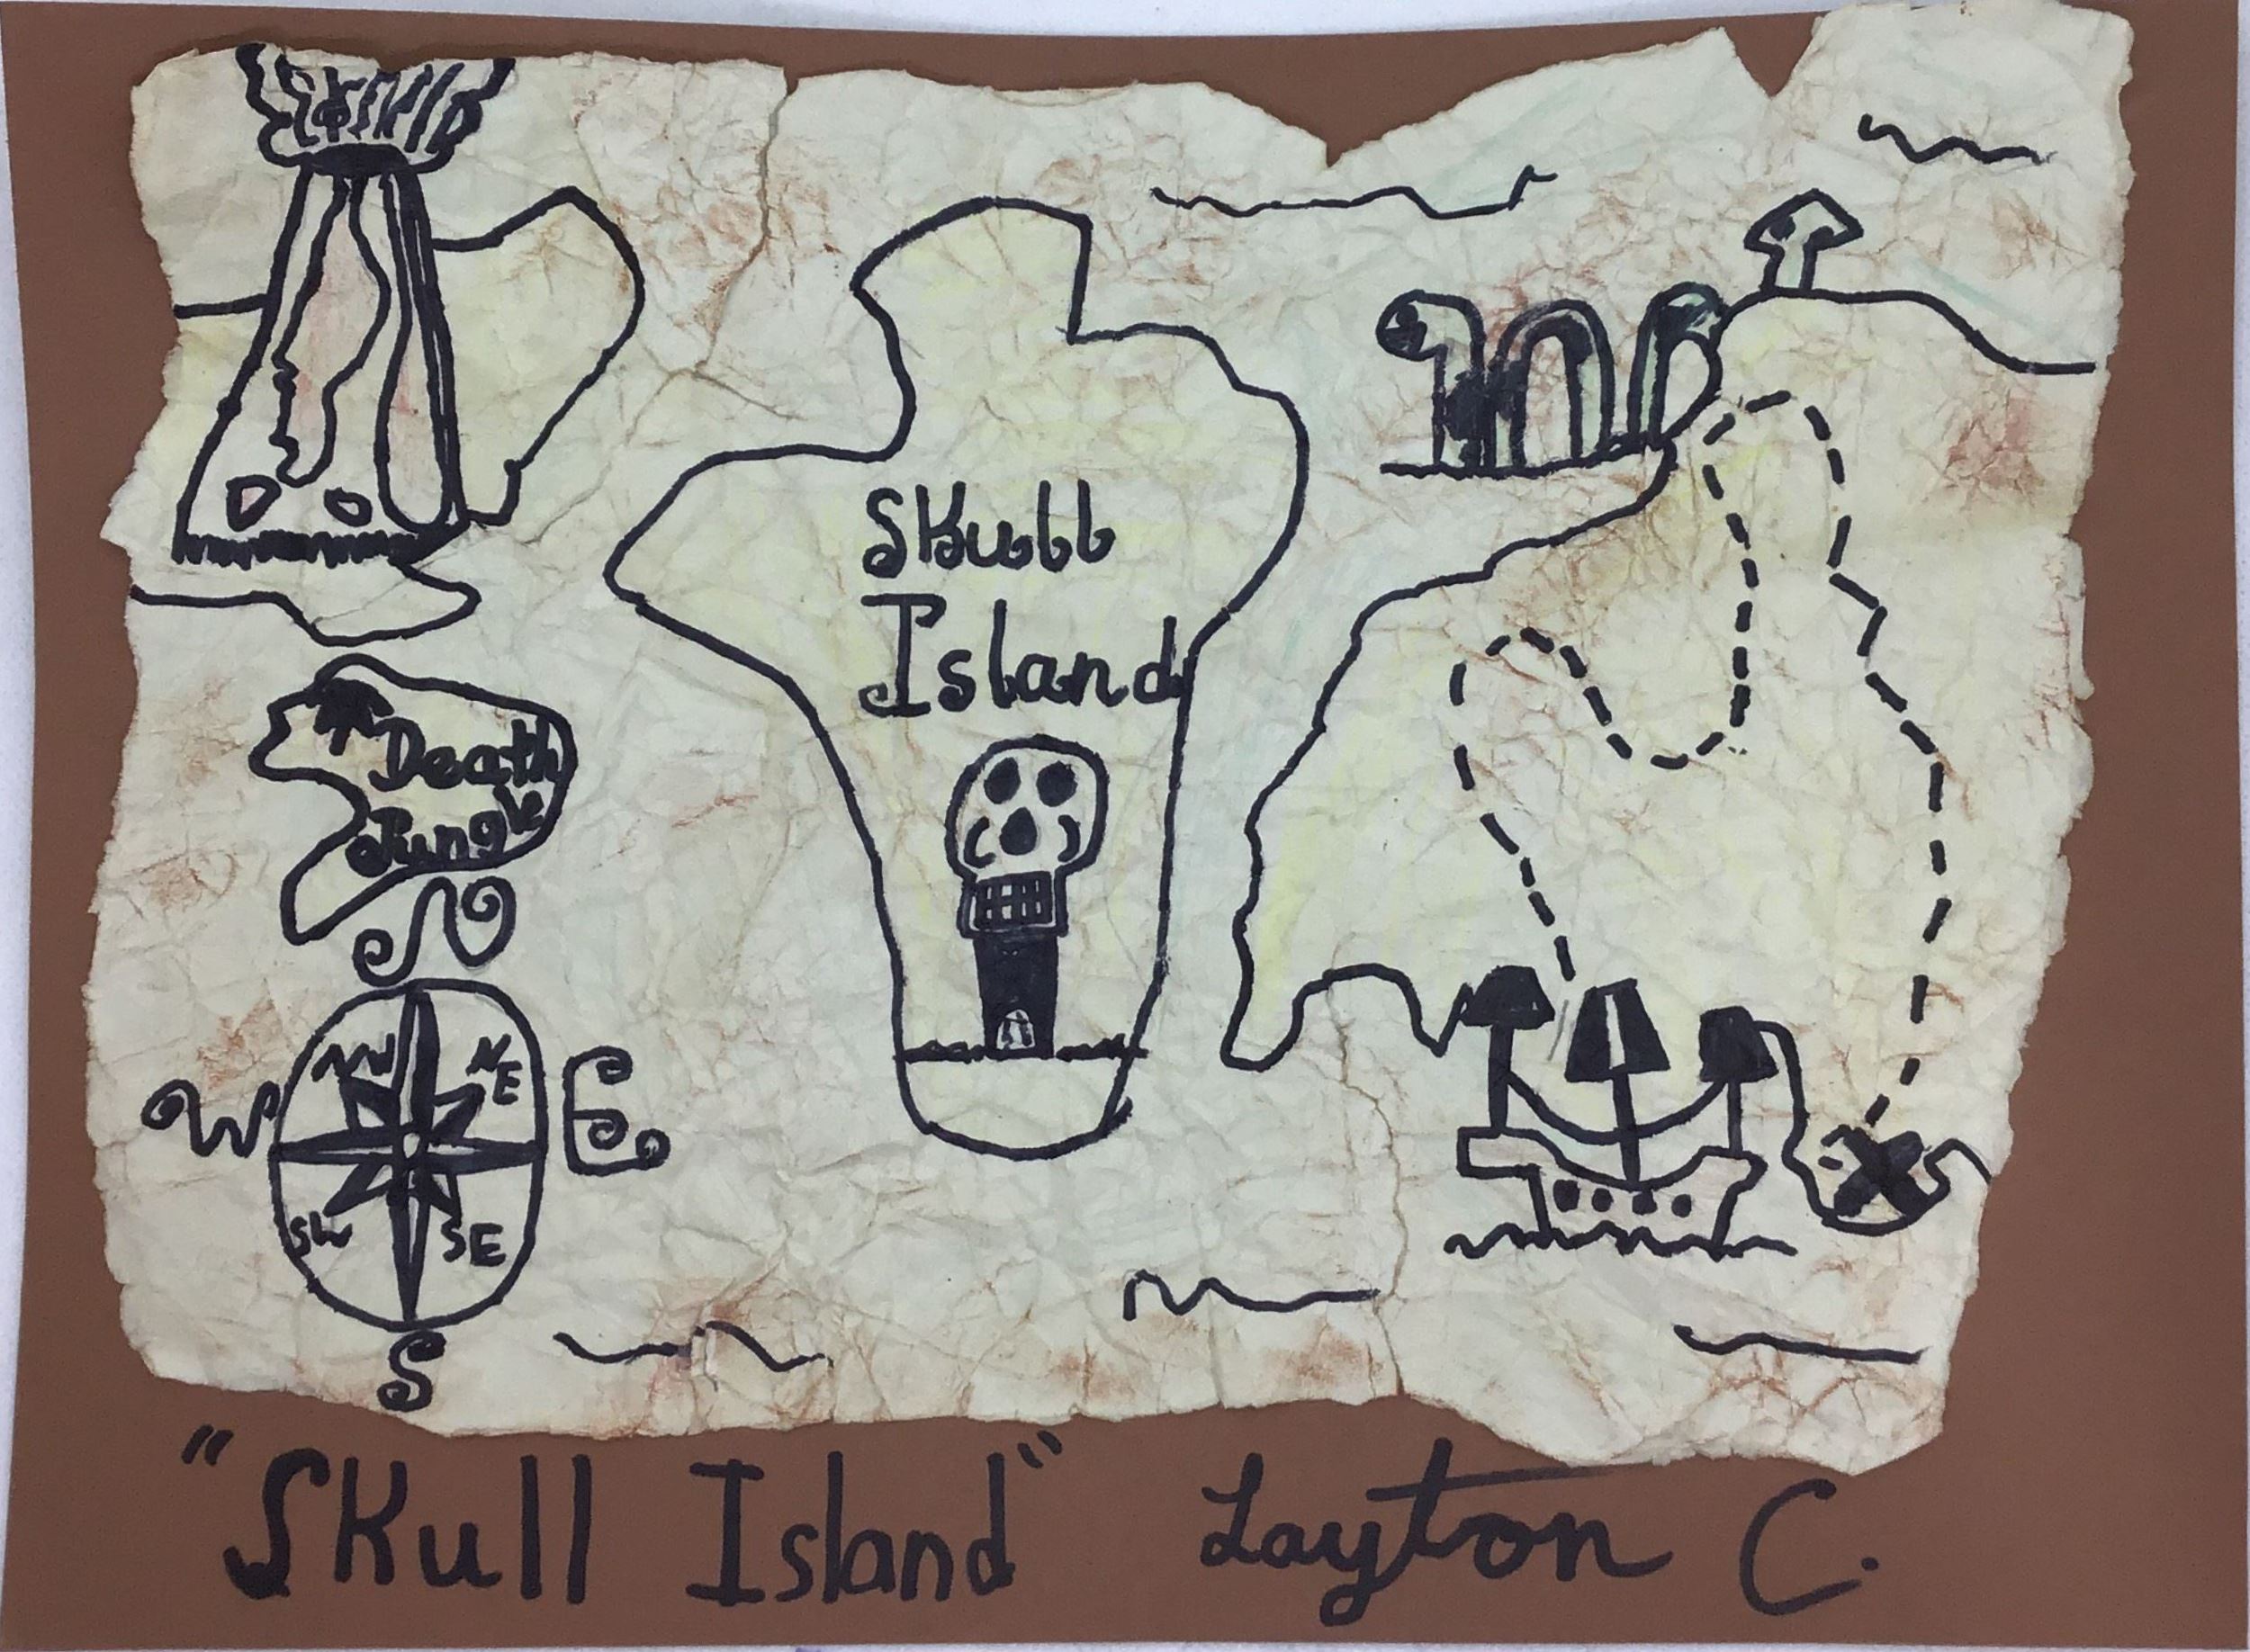 Skull
Island
Death
Jungle
N
NW NE
W E
SW SE
S
"Skull Island" Layton C.